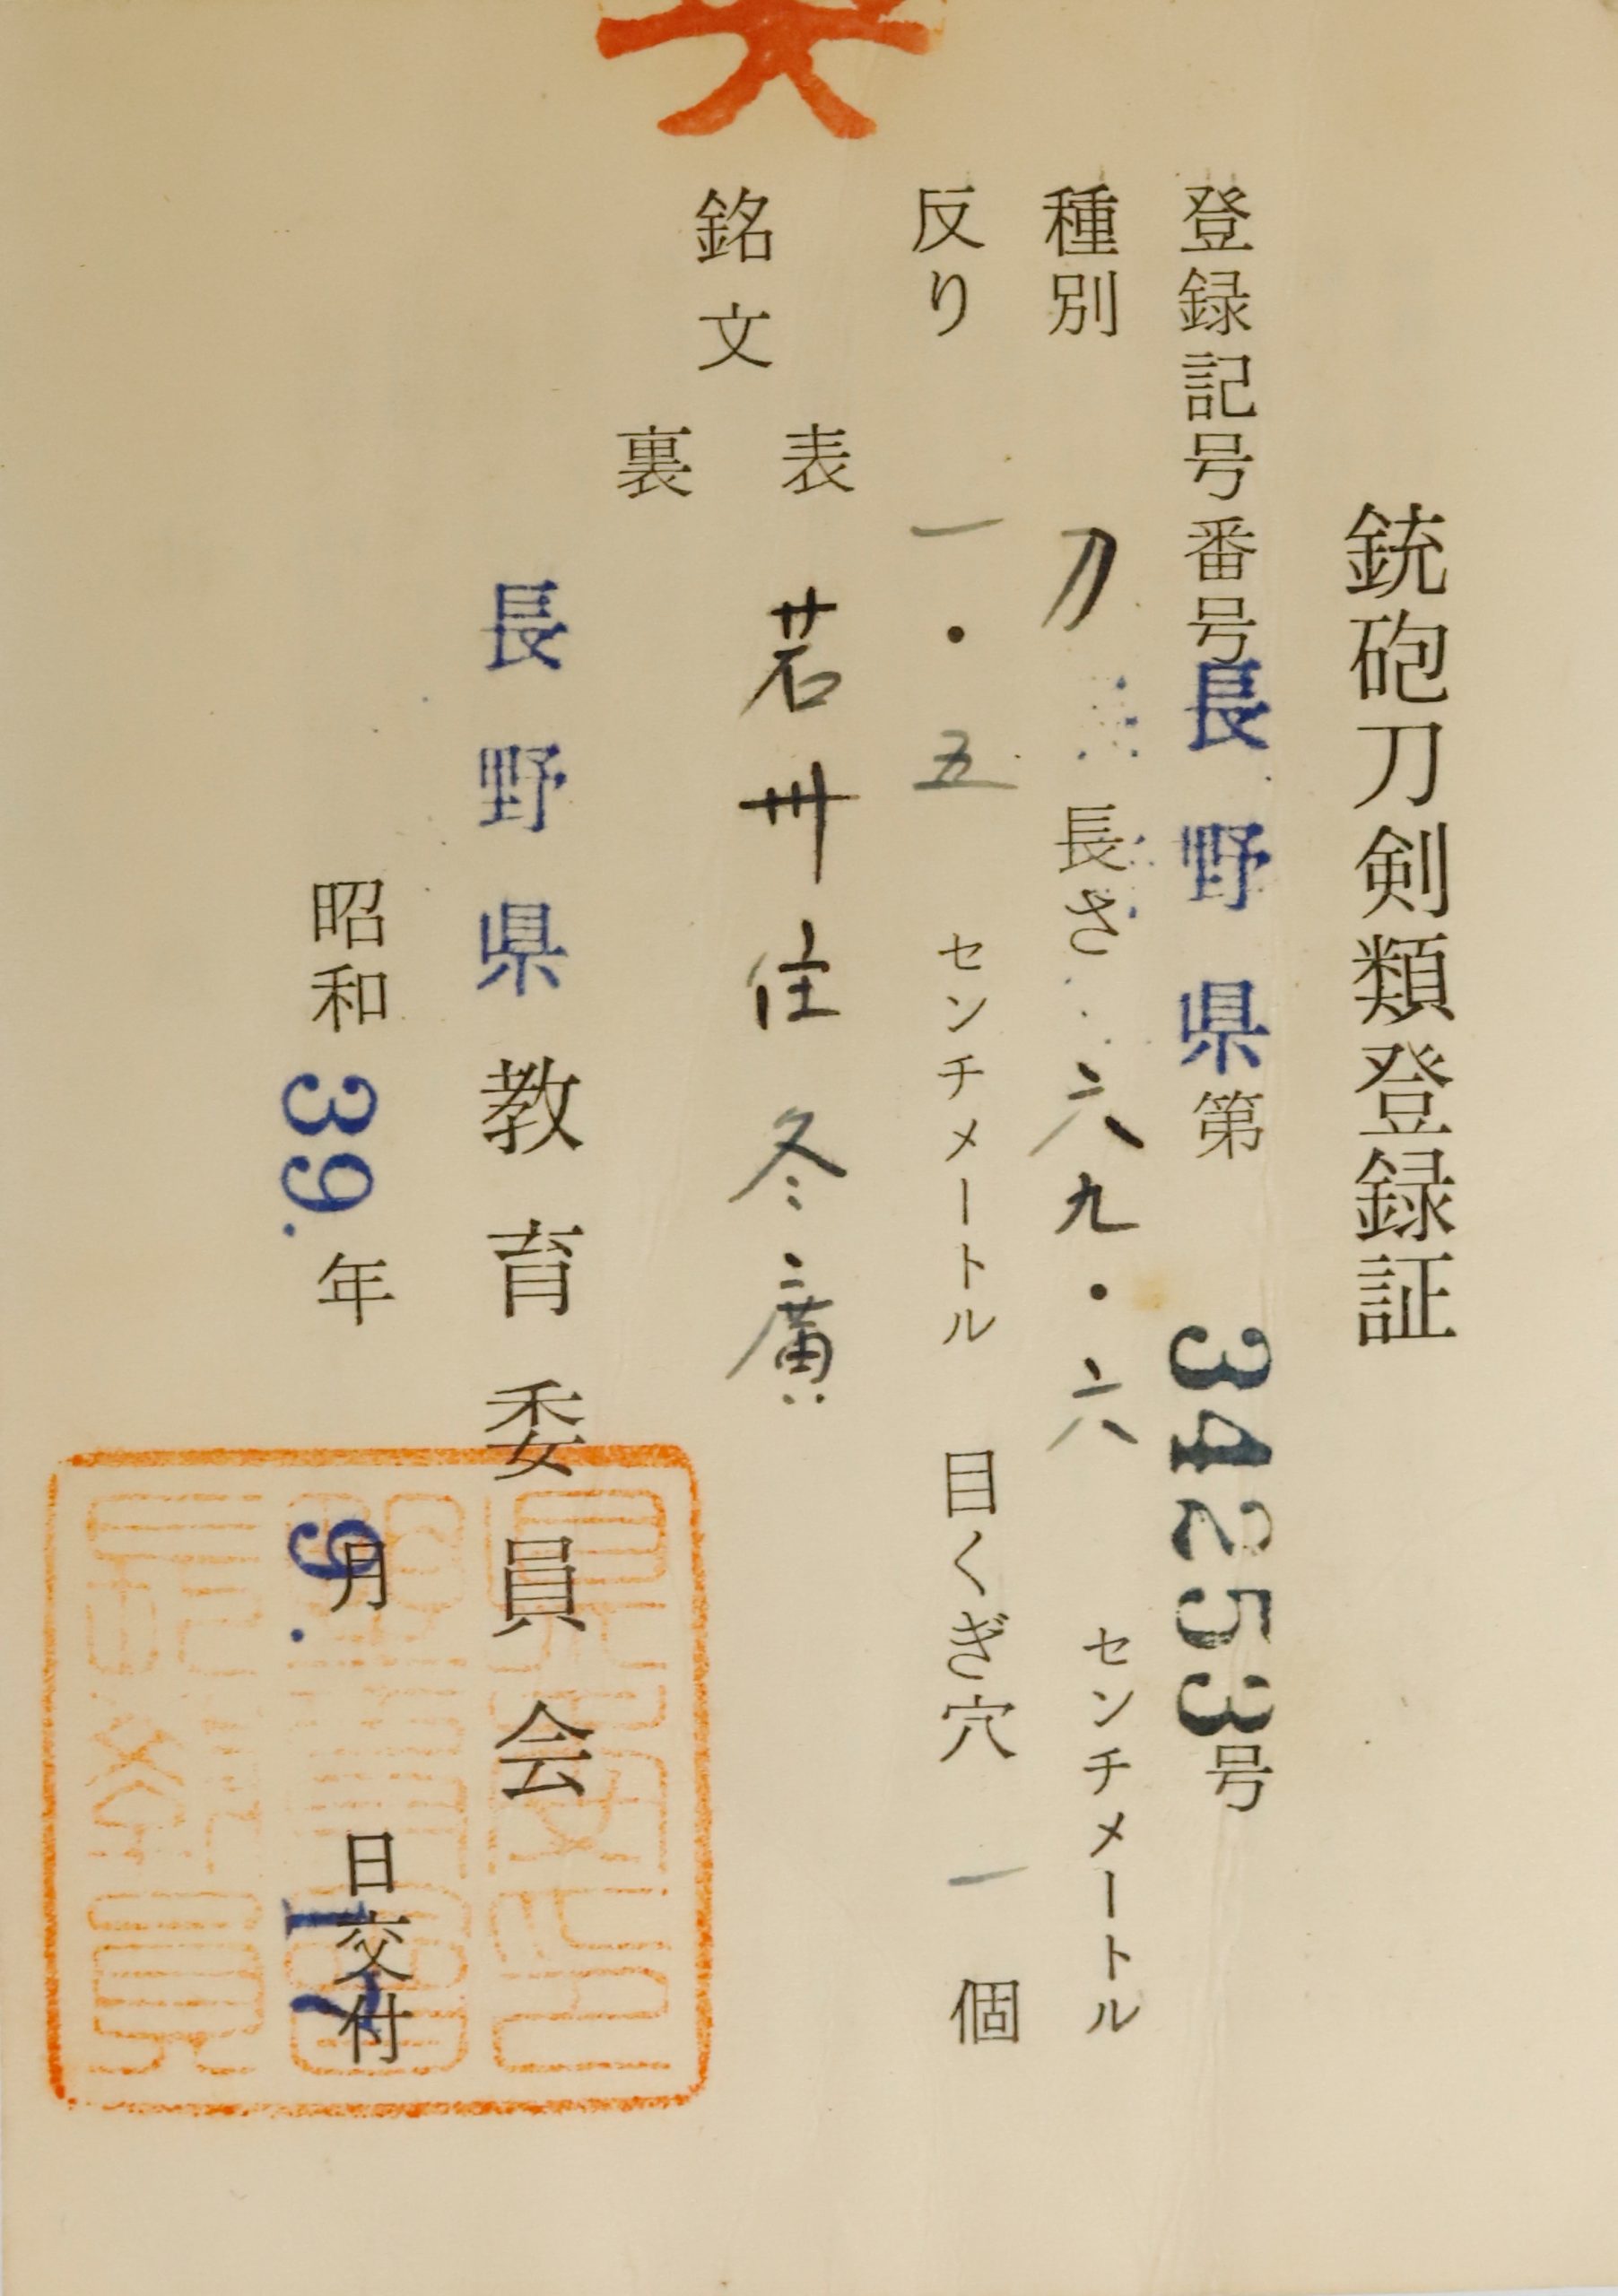 銃砲刀剣類登録証
登録記号番号長野県第 34253号
種別 刀 長さ 六九・六 センチメートル
反り 一・五 センチメートル 目くぎ穴 一 個
銘文
表 若州住冬廣
裏
長野県教育委員会
昭和39.年9.月17日交付